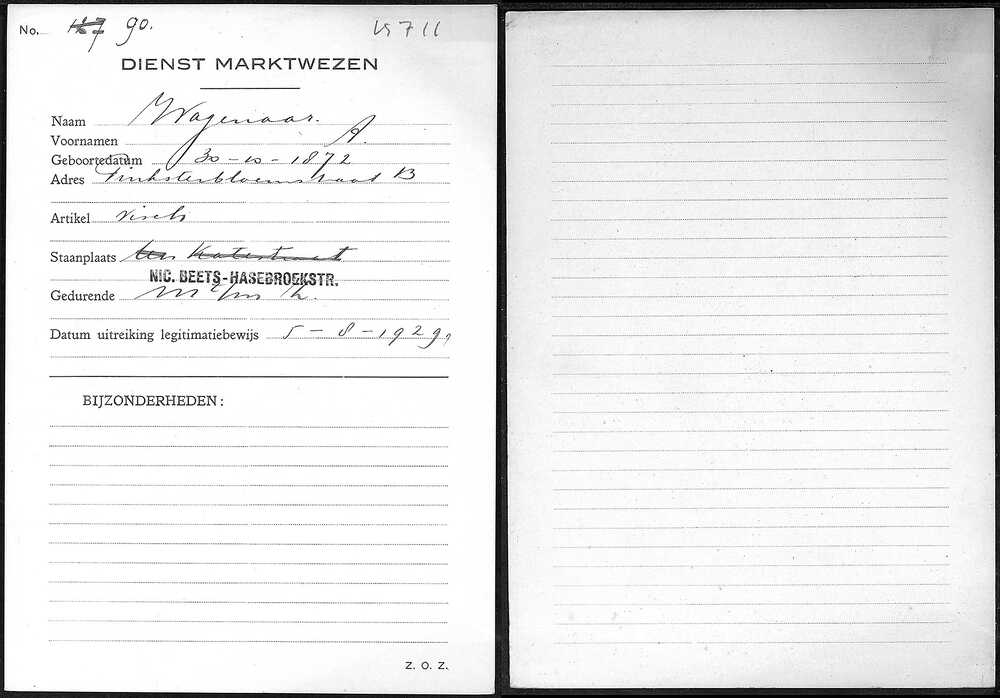 No. 90. 15711
DIENST MARKTWEZEN
Naam Wagenaar.
Voornamen A.
Geboortedatum 30-10-1872
Adres Pinksterbloemstraat 13
Artikel visch
Staanplaats
NIC. BEETS-HASEBROEKSTR.
Gedurende
Datum uitreiking legitimatiebewijs 5-8-1929
BIJZONDERHEDEN:
Z. O. Z.